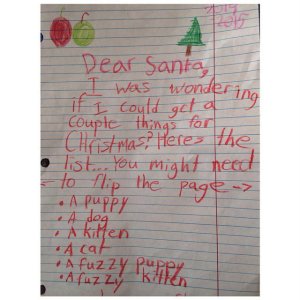 2015
Dear Santa,
I was wondering
if I could get a
couple things for
Christmas? Heres the
list... You might need
<- to flip the page ->
• A puppy
• A dog
• A kitten
• A cat
• A fuzzy puppy
• A fuzzy kitten